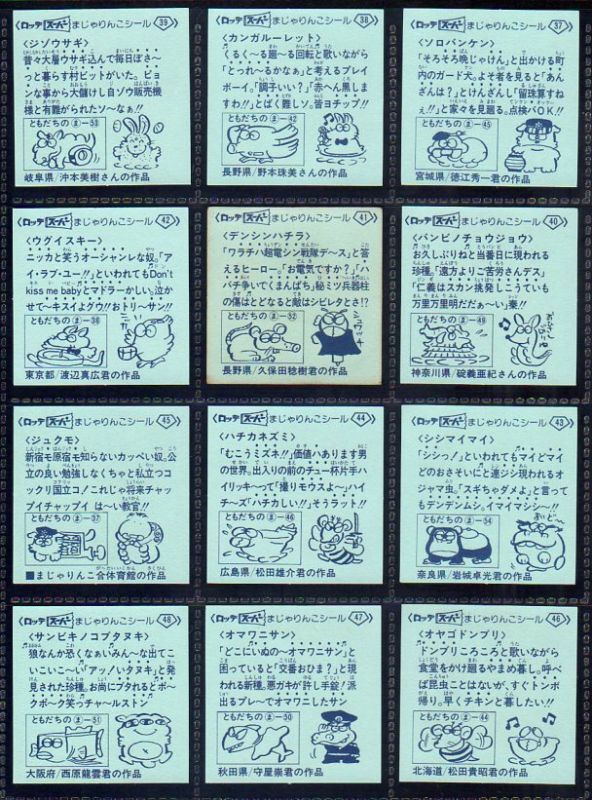 ロッテ スーパー まじゃりんこシール 39
<ジゾウサギ>
昔々大層ウサギ込んで毎日ぼさ〜
っと暮らす村ビットがいた。ピョ
ンな事から大儲けし自ゾウ販売機
様と有難がられたソ〜なぁ!!
ともだちの ま—53
岐阜県/沖本美樹さんの作品
ロッテ スーパー まじゃりんこシール 38
<カンガルーレット>
くるく〜る廻〜る回転と歌いながら
「とっれ〜るかなぁ」と考えるプレイ
ボーイ。「調子いい?」「赤へん黒しま
すわ!!」とばく難しソ。皆ヨチップ!!
ともだちの ま—42
長野県/野本珠美さんの作品
ロッテ スーパー まじゃりんこシール 37
<ソロバンケン>
「そろそろ晩じゃけん」と出かける町
内のガード犬。よそ者を見ると「あん
ざんは?」とけんざんし「留珠算すね
ぇ!!」と家々を見廻る。点検パOK!!
ともだちの ま—45
宮城県/徳江秀一君の作品
ロッテ スーパー まじゃりんこシール 42
<ウグイスキー>
ニッカと笑うオーシャンレな奴。「ア
イ・ラブ・ユー!!」といわれてもDon't
kiss me babyとマドラーかしい。泣か
せて〜キスイよグウ!!おトリ〜サン!!
ともだちの ま—38
東京都/渡辺真広君の作品
ロッテ スーパー まじゃりんこシール 41
<デンシンハチラ>
「ワラチハ超電シン戦隊デ〜ス」と答
えるヒーロー。「お電気ですか?」「ハ
バチ争いてくまんばち」秘ミツ兵器柱
の傷はとどなると敵はシビレタとさ!?
ともだちの ま—52
長野県/久保田稔樹君の作品
ロッテ スーパー まじゃりんこシール 40
<バンビノチョウジョウ>
お久しぶりねと当番日に現われる
珍種。「遠方よりご苦労さんデス」
「仁義はスカン挑発しこうていも
万里万里明だだぁ〜い」棄!!
ともだちの ま—49
神奈川県/碇義亜紀さんの作品
ロッテ スーパー まじゃりんこシール 45
<ジュクモ>
新宿モ原宿モ知らないカッペい奴。公
立の良い勉強しなくちゃと私立つコ
ックリ国立コ!これじゃ将来チャッ
プイチャップイ は〜い教官!!
ともだちの ま—37
■まじゃりんこ合体育館の作品
ロッテ スーパー まじゃりんこシール 44
<ハチカネズミ>
「むこうミズネ!!」価値ハあります男
の世界。出入りの前のチュー杯片手ハ
イリッキ〜って「撮りモウスよ〜ハイ
チ〜ズ「ハチカしい!!」そうラット!!
ともだちの ま—46
広島県/松田雄介君の作品
ロッテ スーパー まじゃりんこシール 43
<シシマイマイ>
「シシっ!」といわれてもマイどマイ
どのおさそいにと連ジシ現われるオ
ジャマ虫。「スギちゃダメよ」と言って
もデンデンムシ。イマイマシシ〜!!
ともだちの ま—54
奈良県/岩城卓光君の作品
ロッテ スーパー まじゃりんこシール 48
<サンビキノコブタヌキ>
狼なんか恐くなぁいみん〜な出てこ
いこいこ〜い「アッ!いタヌキ」と発
見された珍種。お尚にブタれるとポー
クポーク笑っチャ〜ルストン
ともだちの ま—51
大阪府/西原龍雲君の作品
ロッテ スーパー まじゃりんこシール 47
<オマワニサン>
「どこにいぬの〜オマワニサン」と
困っていると「交番おひま?」と現
われる新種。悪ガキが許し手錠!派
出るプレ〜でオマワニしたサン
ともだちの ま—50
秋田県/守屋崇君の作品
ロッテ スーパー まじゃりんこシール 46
<オヤゴドンブリ>
ドンブリころころと歌いながら
食堂をかけ廻るやまめ暮し。呼べ
ば昆虫ことはないが、すぐトンボ
帰り。早くチキンと暮したい!!
ともだちの ま—44
北海道/松田貴昭君の作品